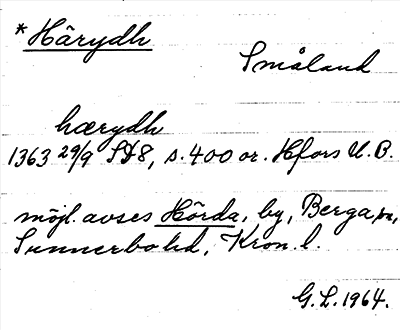 *Hårydh
Småland
hærydh
1363 29/9 SD8, s. 400 or. Hfors U.B.
möjl. avses Hörda, by, Berga sn,
Sunnerbo hd, Kron. l.
G.L. 1964.